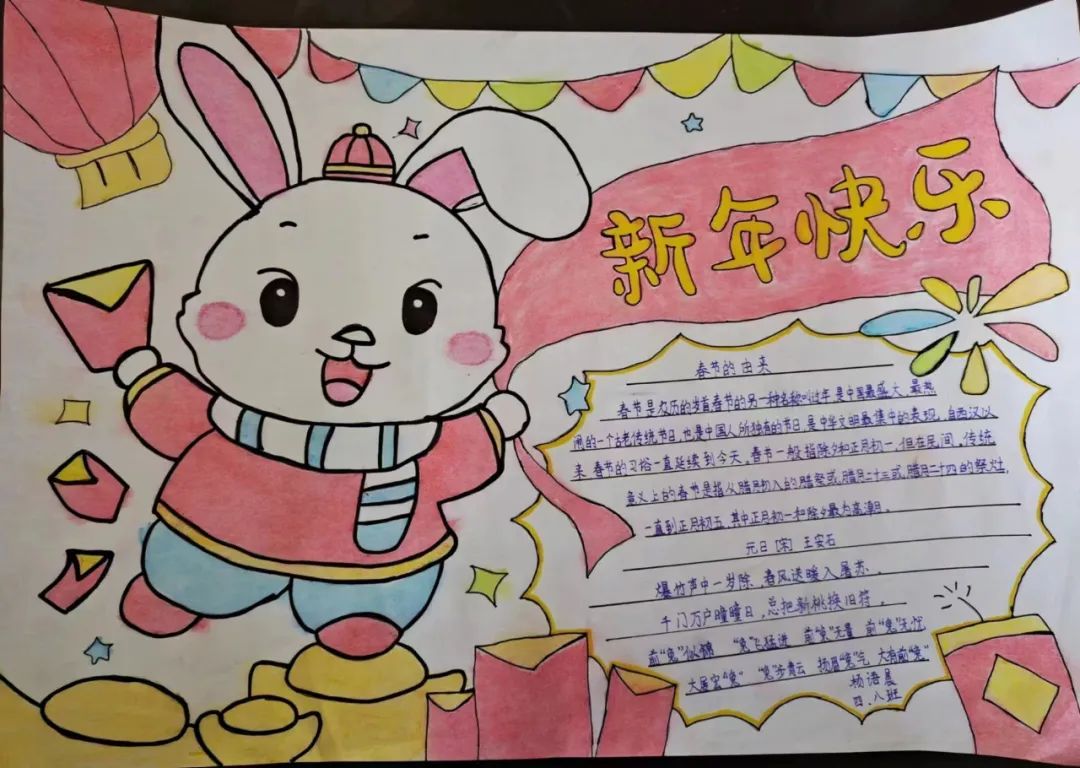 新年快乐
春节的由来
春节是农历的岁首春节的另一种名称叫过年是中国最盛大、最热
闹的一个古老传统节日,也是中国人所独有的节日,是中华文明最集中的表现,自西汉以
来春节的习俗一直延续到今天。春节一般指除夕和正月初一,但在民间,传统
意义上的春节是指从腊月初八的腊祭或腊月二十三或腊月二十四的祭灶,
一直到正月初五,其中正月初一和除夕最为高潮。
元日[宋]王安石
爆竹声中一岁除,春风送暖入屠苏。
千门万户曈曈日,总把新桃换旧符。
前"兔"似锦 "兔"飞猛进 前"兔"无量 前"兔"无忧
大展宏"兔" "兔"步青云 扬眉"兔"气 大有前"兔"
杨语晨
四、八班